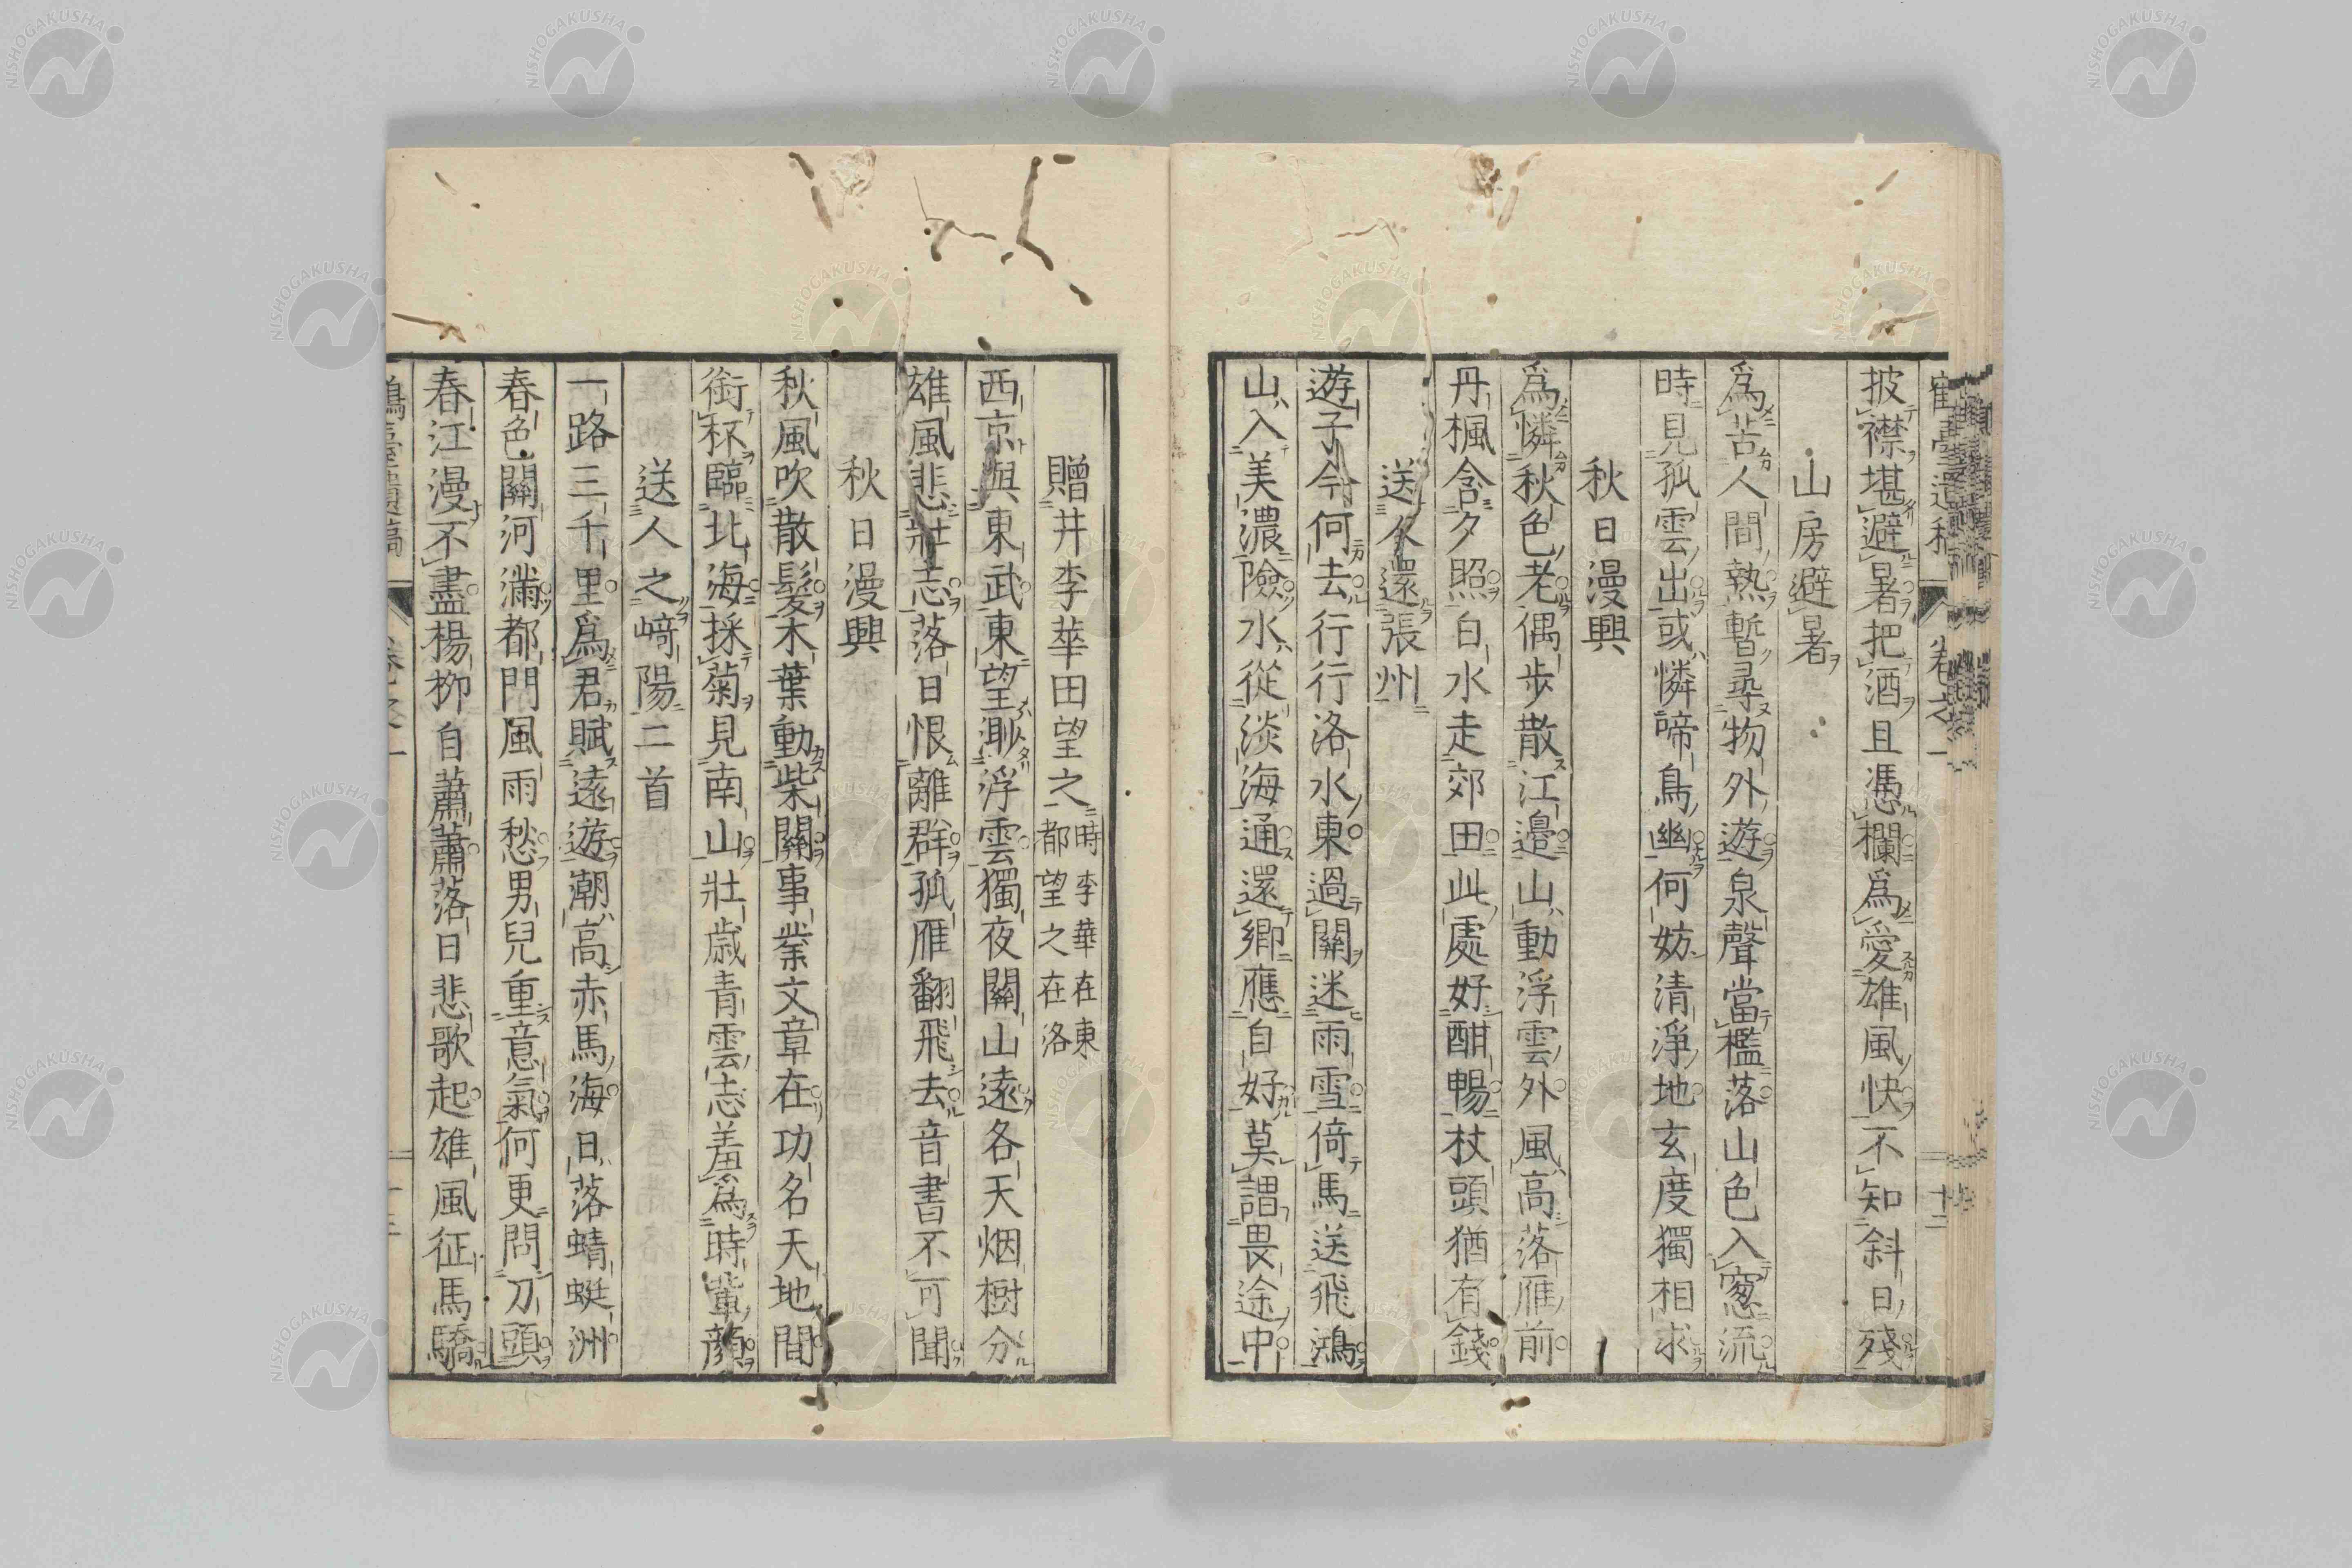 披襟堪避暑把酒且憑欄爲愛雄風快不知斜日殘
山房避暑
爲苦人間熱暫尋物外遊泉聲當檻落山色入窓流
時見孤雲出或憐啼鳥幽何妨清淨地玄度獨相求
秋日漫興
爲憐秋色老偶步散江邉山動浮雲外風高落雁前
丹楓含夕照白水走郊田此處好酣暢杖頭猶有錢
送人還張州
遊子今何去行行洛水東過關迷雨雪倚馬送飛鴻
山入美濃險水從淡海通還鄉應自好莫謂畏途中
贈井李華田望之時李華在東都望之在洛
西京與東武東望渺浮雲獨夜關山遠各天烟樹分
雄風悲壯志落日恨離群孤雁翻飛去音書不可聞
秋日漫興
秋風吹散髮木葉動柴關事業文章在功名天地間
銜杯臨北海採菊見南山壯歲青雲志羞爲時輩顔
送人之﨑陽二首
一路三千里爲君賦遠遊潮高赤馬海日落蜻蜓洲
春色關河滿都門風雨愁男兒重意氣何更問刀頭
春江漫不盡楊栁自蕭蕭落日悲歌起雄風征馬驕
NISHOGAKUSHA